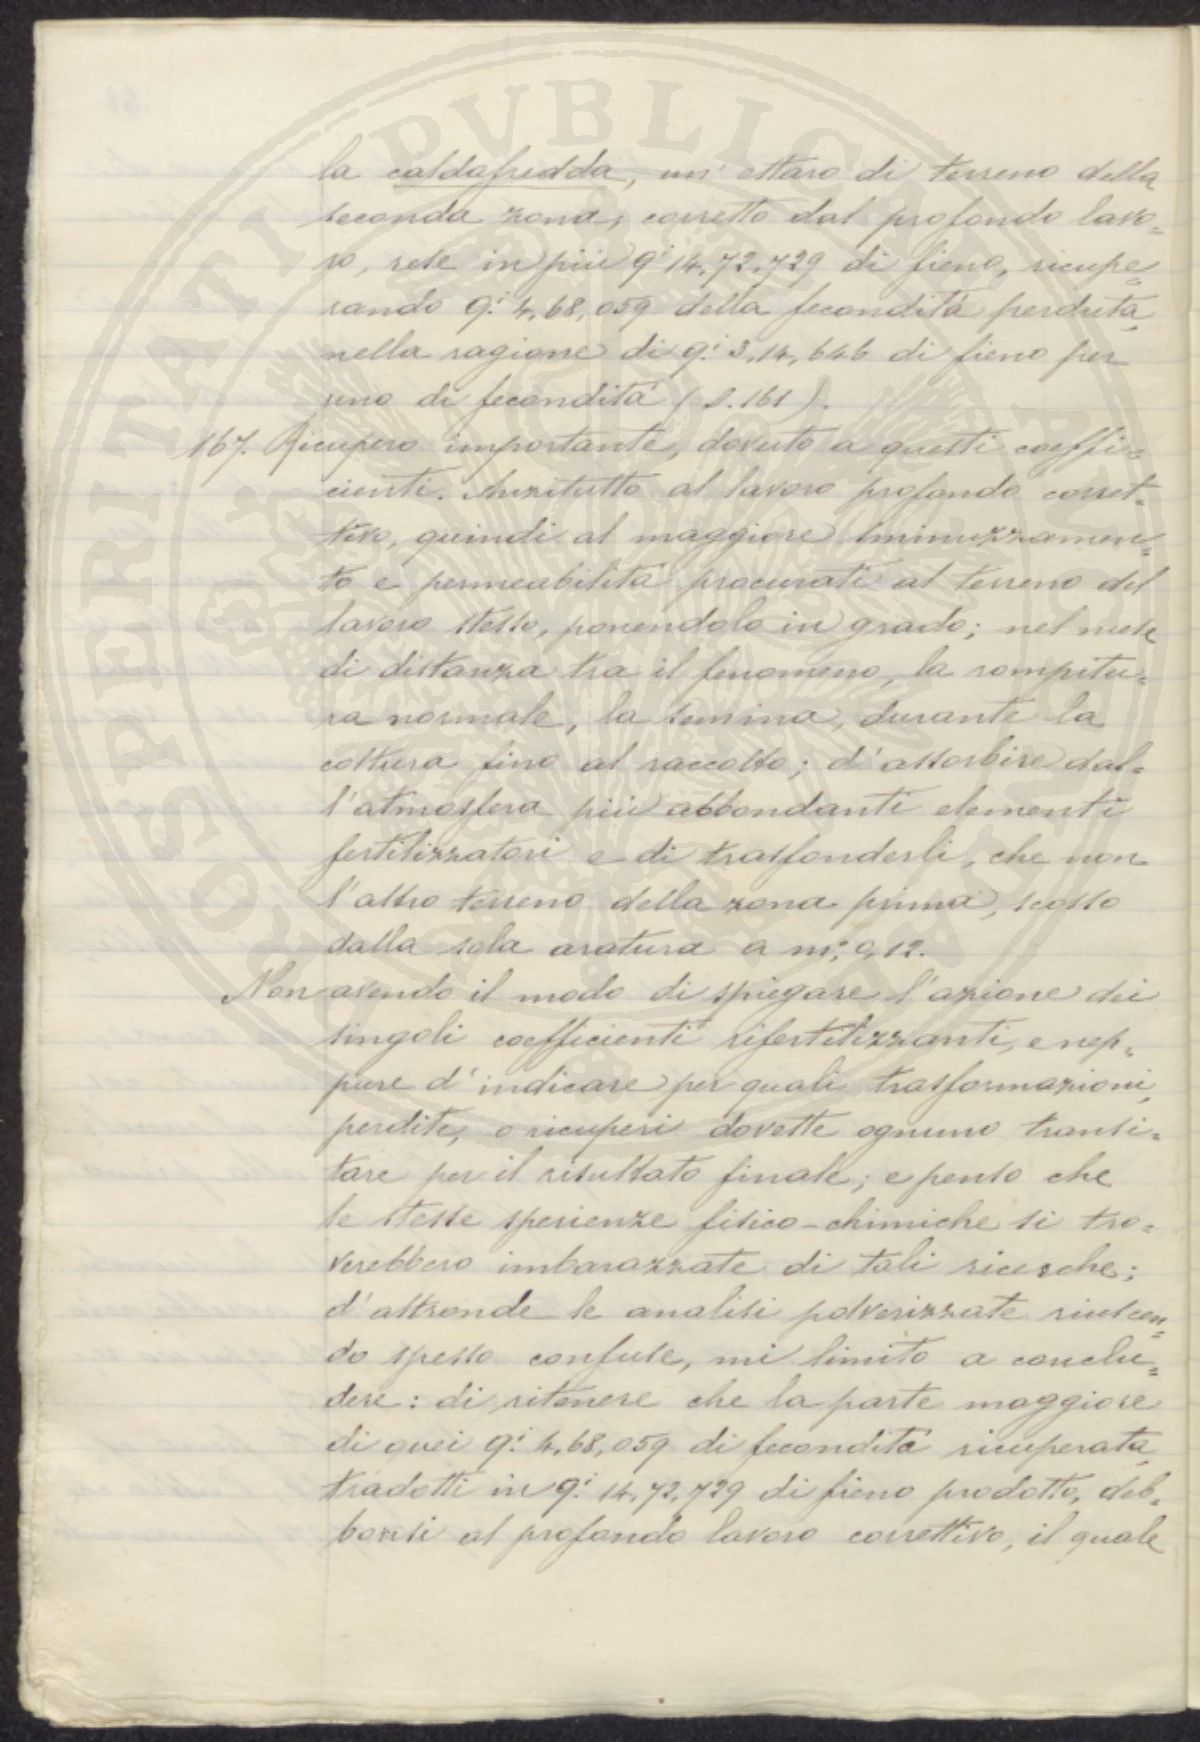 la caldafredda, un' ettaro di terreno della
seconda zona, corretto dal profondo lavo=
ro, rese in più q.i 14,72,729 di fieno, ricupe=
rando q.i 4,68,059 della fecondità perduta,
nella ragione di q.i 3,14,646 di fieno per
uno di fecondità (S. 161).
167. Ricupero importante, dovuto a questi coeffi=
cienti. Anzitutto al lavoro profondo corret=
tivo, quindi al maggiore sminuzzamen=
to e permeabilità procurati al terreno del
lavoro stesso, ponendolo in grado; nel mese
di distanza tra il fenomeno, la rompitu=
ra normale, la semina, durante la
coltura fino al raccolto; d'assorbire dal=
l'atmosfera più abbondanti elementi
fertilizzatori e di trasfonderli, che non
l'altro terreno della zona prima, scosso
dalla sola aratura a m; 0,12.
Non avendo il modo di spiegare l'azione dei
singoli coefficienti rifertilizzanti, e nep=
pure d'indicare per quali trasformazioni,
perdite, o ricuperi dovette ognuno transi=
tare per il risultato finale; e penso che
le stesse sperienze fisico-chimiche si tro=
verebbero imbarazzate di tali ricerche;
d'altronde le analisi polverizzate riuscen=
do spesso confuse, mi limito a conclu=
dere: di ritenere che la parte maggiore
di quei q.i 4,68,059 di fecondità ricuperata,
tradotti in q.i 14,72,729 di fieno prodotto, deb=
bonsi al profondo lavoro correttivo, il quale
SOSPERITATI PVBLICAE